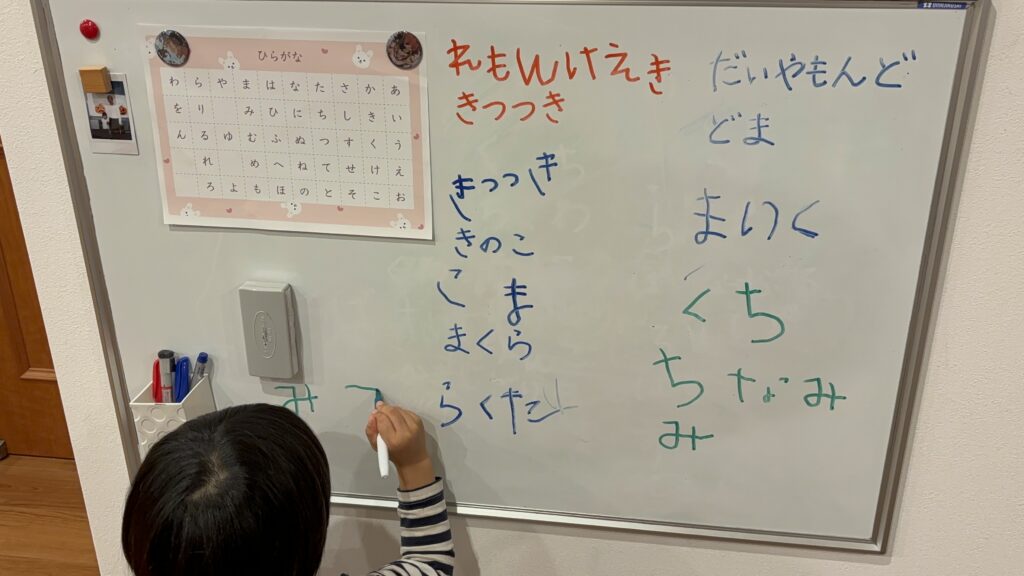 ひらがな
わ ら や ま は な た さ か あ
を り み ひ に ち し き い
ん る ゆ む ふ ぬ つ す く う
れ め へ ね て せ け え
ろ よ も ほ の と そ こ お
れもんけえき
きつつき
きつつき
きのこ
こま
まくら
らくた
だいやもんど
どま
まいく
くち
ちなみ
み
み